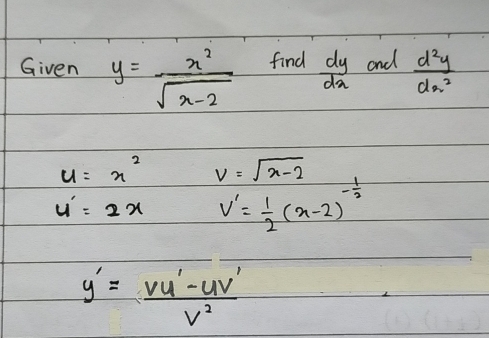 Given y = x² / √(x-2) find dy/dx and d²y/dx²
u = x² v = √(x-2)
u' = 2x v' = 1/2 (x-2)^(-1/2)
y' = (vu' - uv') / v²